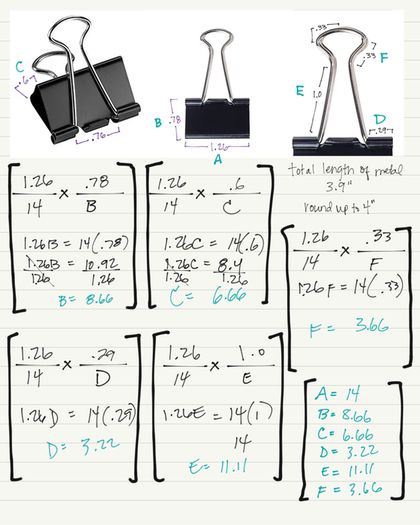 C
.6
.76
B
.78
1.26
A
.33
F
.33
E
1.0
D
.29
total length of metal
3.9"
round up to 4"
1.26 x .78
14 B
1.26B = 14(.78)
1.26B = 10.92
1.26 1.26
B= 8.66
1.26 x .6
14 C
1.26C = 14(.6)
1.26C = 8.4
1.26 1.26
C= 6.66
1.26 x .33
14 F
1.26F = 14(.33)
F = 3.66
1.26 x .29
14 D
1.26D = 14(.29)
D= 3.22
1.26 x 1.0
14 E
1.26E = 14(1)
14
E= 11.11
A= 14
B= 8.66
C= 6.66
D= 3.22
E= 11.11
F= 3.66